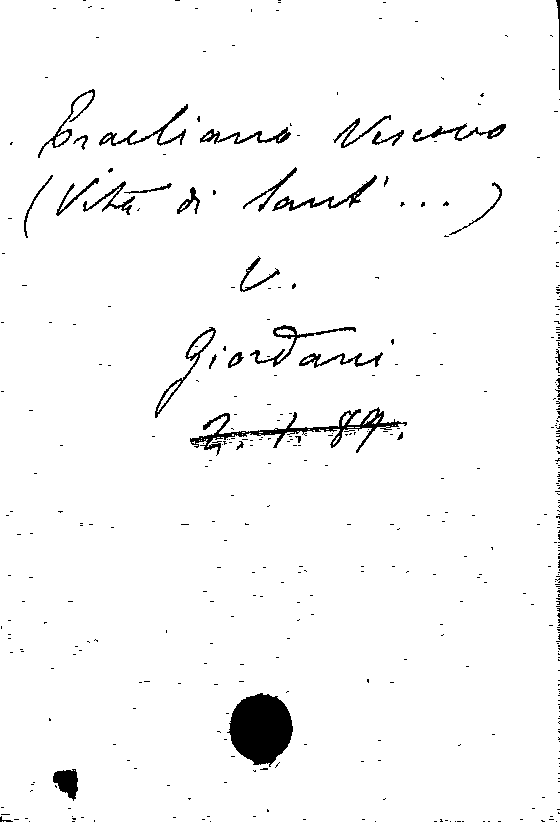 Eracliano Vescovo
(Vita di Sant' ...)
V.
Giordani
2. 1. 89.